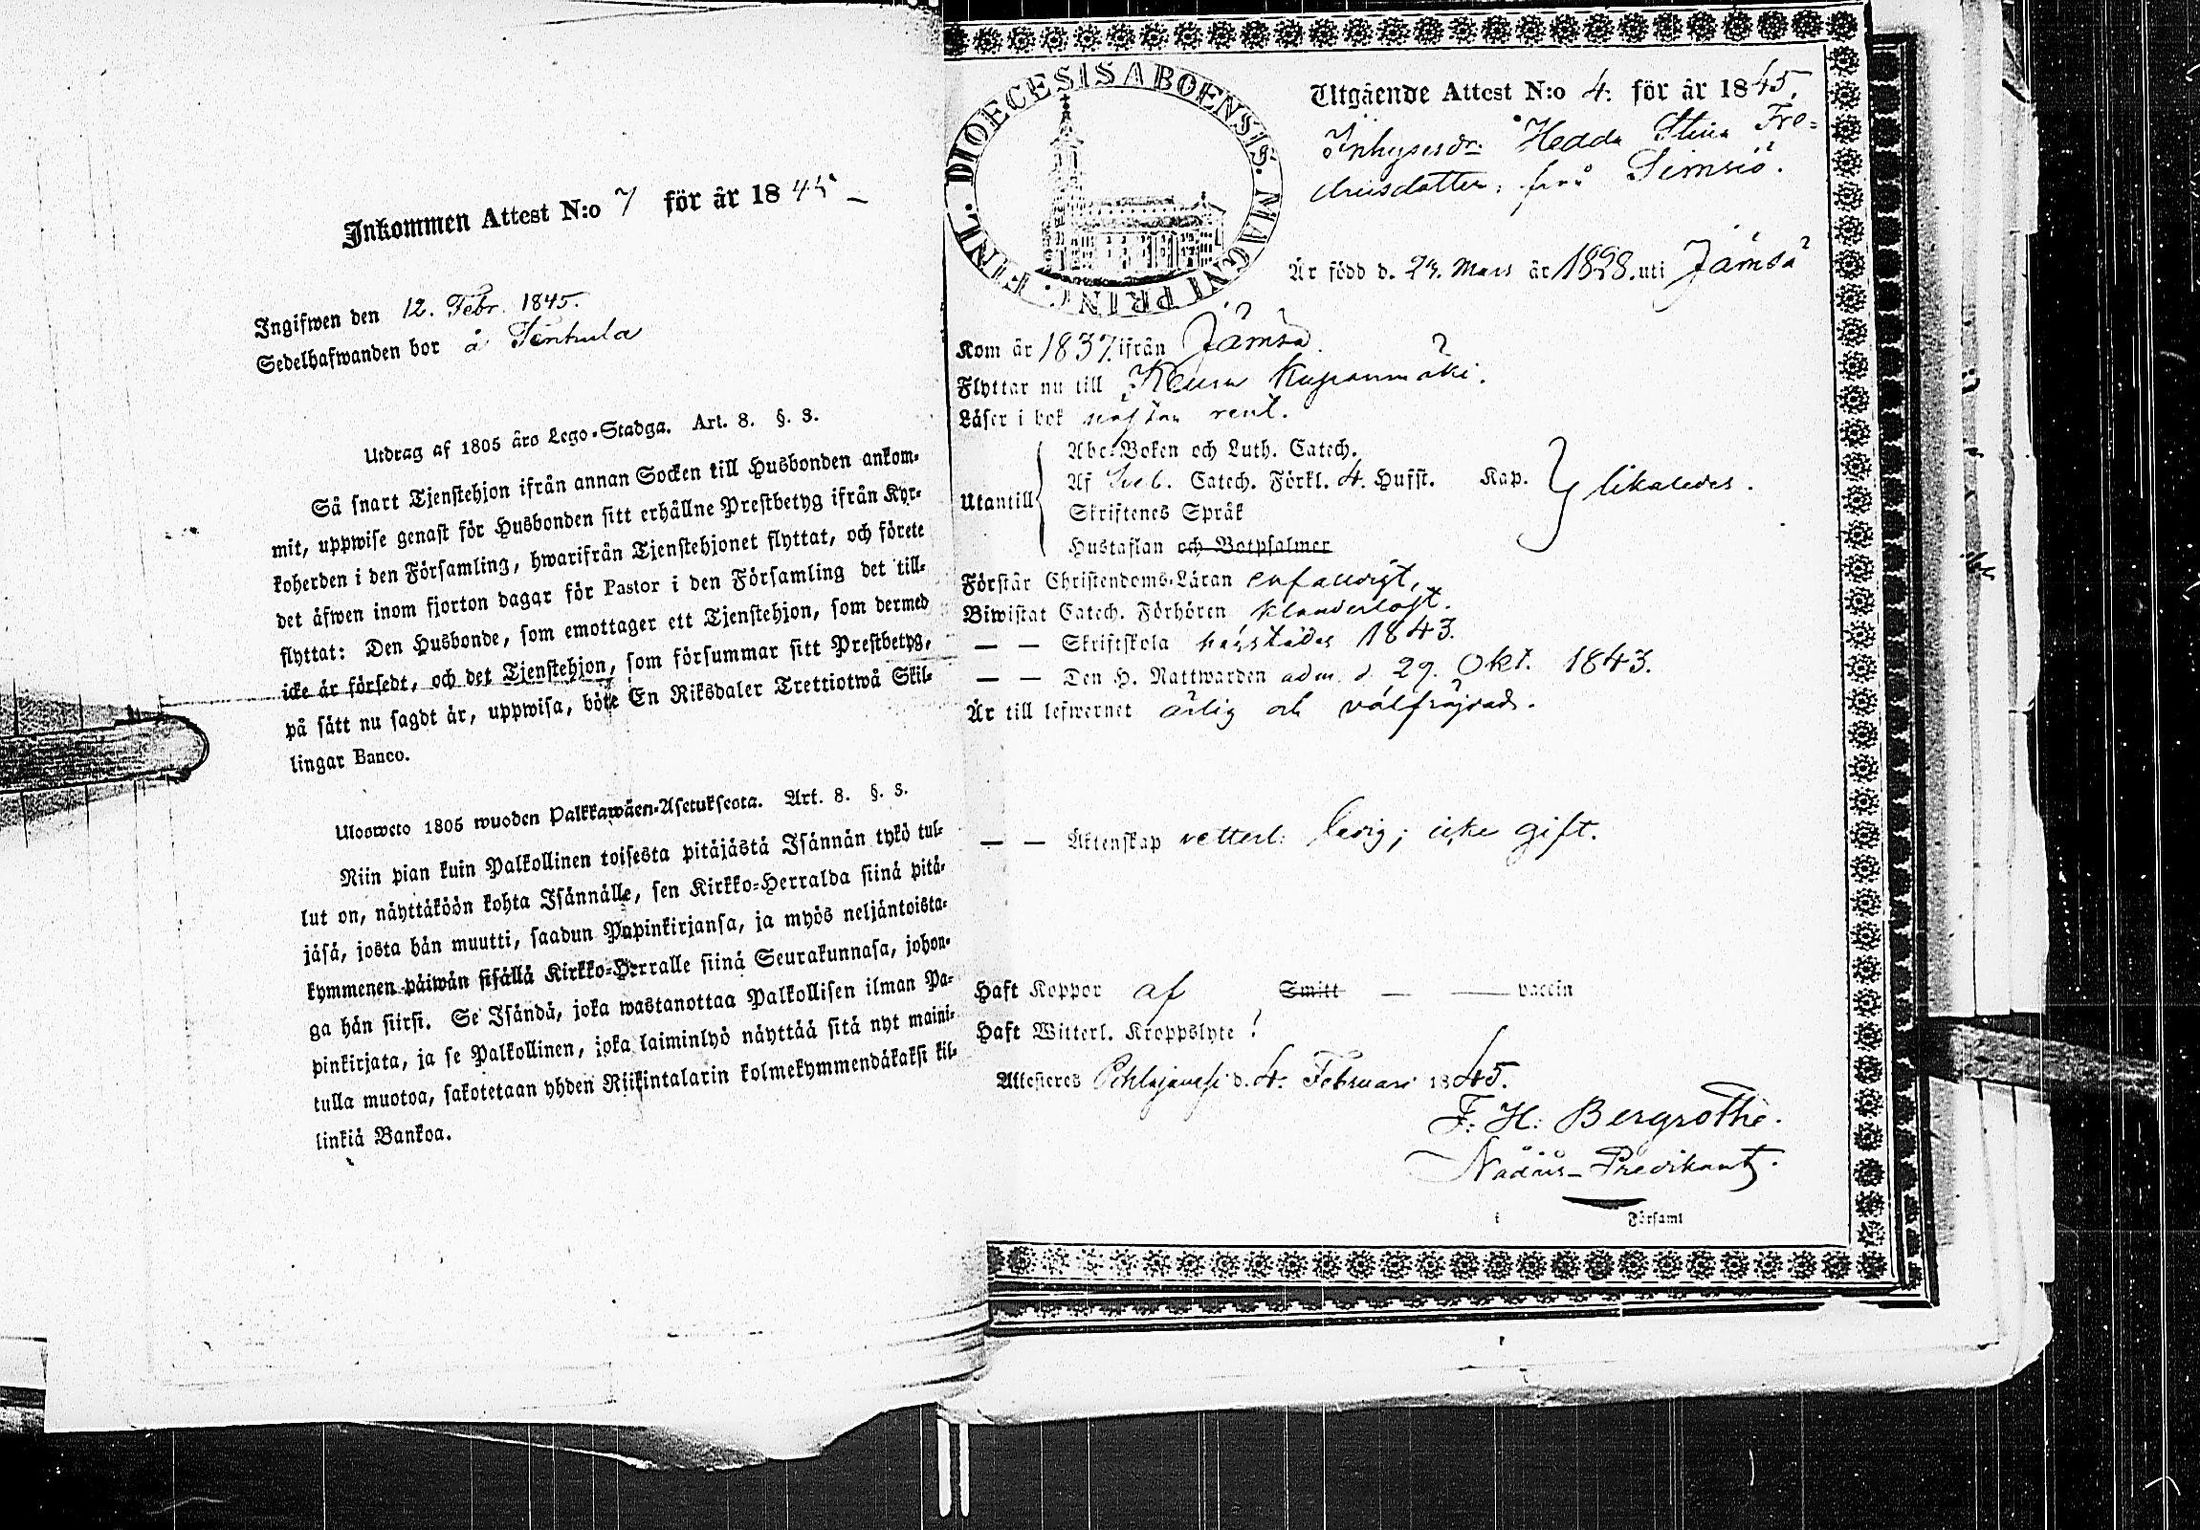 Inkommen Attest N:o 7 för år 1845
Ingifwen den 12. Febr. 1845.
Sedelhafwanden bor å
Utdrag af 1805 åro Lego-Stadga. Art. 8. §. 3.
Så snart Tjenstehjon ifrån annan Socken till Husbonden ankom-
mit, uppwise genast för Husbonden sitt erhållne Prestbetyg ifrån Kyr-
koherden i den Församling, hwarifrån Tjenstehjonet flyttat, och förete
det äfwen inom fjorton dagar för Pastor i den Församling det till-
flyttat: Den Husbonde, som emottager ett Tjenstehjon, som dermed
icke är försedt, och det Tjenstehjon, som försummar sitt Prestbetyg,
på sätt nu sagdt är, uppwisa, böte En Riksdaler Trettiotwå Skil-
lingar Banco.
Ulosweto 1805 wuoden Palkkawäen-Asetuksesta. Art. 8. §. 3.
Niin pian kuin Palkollinen toisesta pitäjästä Isännän tykö tul-
lut on, näyttäköön kohta Isännälle, sen Kirkko-Herralda siinä pitä-
jäsä, josta hän muutti, saadun Papinkirjansa, ja myös neljäntoista-
kymmenen päiwän sisällä Kirkko-Herralle siinä Seurakunnasa, johon-
ga hän siirsi. Se Isändä, joka wastanottaa Palkollisen ilman Pa-
pinkirjata, ja se Palkollinen, joka laiminlyö näyttää sitä nyt maini-
tulla muotoa, sakotetaan yhden Riikintalarin kolmekymmendäkaksi kil-
linkiä Bankoa.
DIOECESIS ABOENSIS. MAGNI PRINC. FINL.
Utgående Attest N:o 4. för år 1845.
Inhysesdr. Hedda Stina Fre-
driksdotter, från Simsiö.
Är född d. 23. Mars år 1828. uti Jämsä
Kom år 1837. ifrån Jämsä.
Flyttar nu till Keuru
Läser i bok nästan rent.
Utantill
Abc-Boken och Luth. Catech.
Af Sveb. Catech. Förkl. 4. Hufst. Kap.
Skriftenes Språk
Hustaflan och Botpsalmer
likaledes.
Förstår Christendoms-Läran enfaldigt,
Biwistat Catech. Förhören klanderlöst.
— — Skriftskola härstädes 1843.
— — Den H. Nattwarden adm. d. 29. Okt. 1843.
Är till lefwernet ärlig och välfräjdad.
— — Äktenskap vetterl. ledig; icke gift.
Haft Koppor af Smitt — — vaccin
Haft Witterl. Kroppslyte
Attesteres Pihlajavesi d. 4. Februari 1845.
F. H. Bergroth.
Nådårs-Predikant.
i Församl